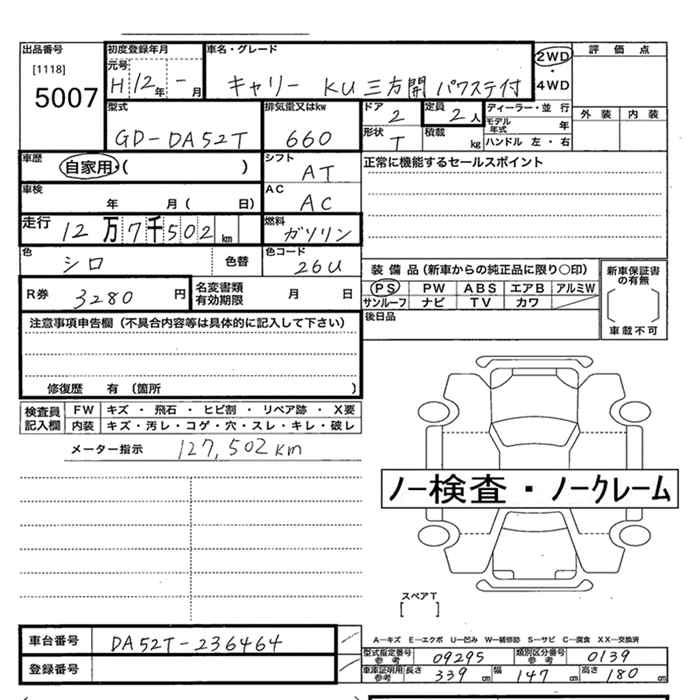 出品番号 初度登録年月 車名・グレード 評価点
[1118] 5007 元号 H 12年 - 月 キャリー KU 三方開 パワステ付 2WD・4WD
型式 排気量又はkw ドア 2 定員 2人 ディーラー・並行 外装 内装
GD-DA52T 660 形状 T 積載 kg モデル年式 年 ハンドル 左・右
車歴 自家用・( ) シフト AT 正常に機能するセールスポイント
車検 年 月( 日) AC AC
走行 12万7千502km 燃料 ガソリン
色 シロ 色替 色コード 26U
装備品(新車からの純正品に限り○印) 新車保証書の有無
R券 3280円 名変書類有効期限 月 日 PS PW ABS エアB アルミW
サンルーフ ナビ TV カワ 車載不可
注意事項申告欄(不具合内容等は具体的に記入して下さい) 後日品
修復歴 有(箇所 )
検査員記入欄 FW キズ・飛石・ヒビ割・リペア跡・X要
内装 キズ・汚レ・コゲ・穴・スレ・キレ・破レ
メーター指示 127,502km
ノー検査・ノークレーム
スペアT
[ ]
車台番号 DA52T-236464
A―キズ E―エクボ U―凹み W―補修跡 S―サビ C―腐食 XX―交換済
登録番号
型式指定番号参考 09295 類別区分番号参考 0139
車庫証明用参考 長さ 339cm 幅 147cm 高さ 180cm